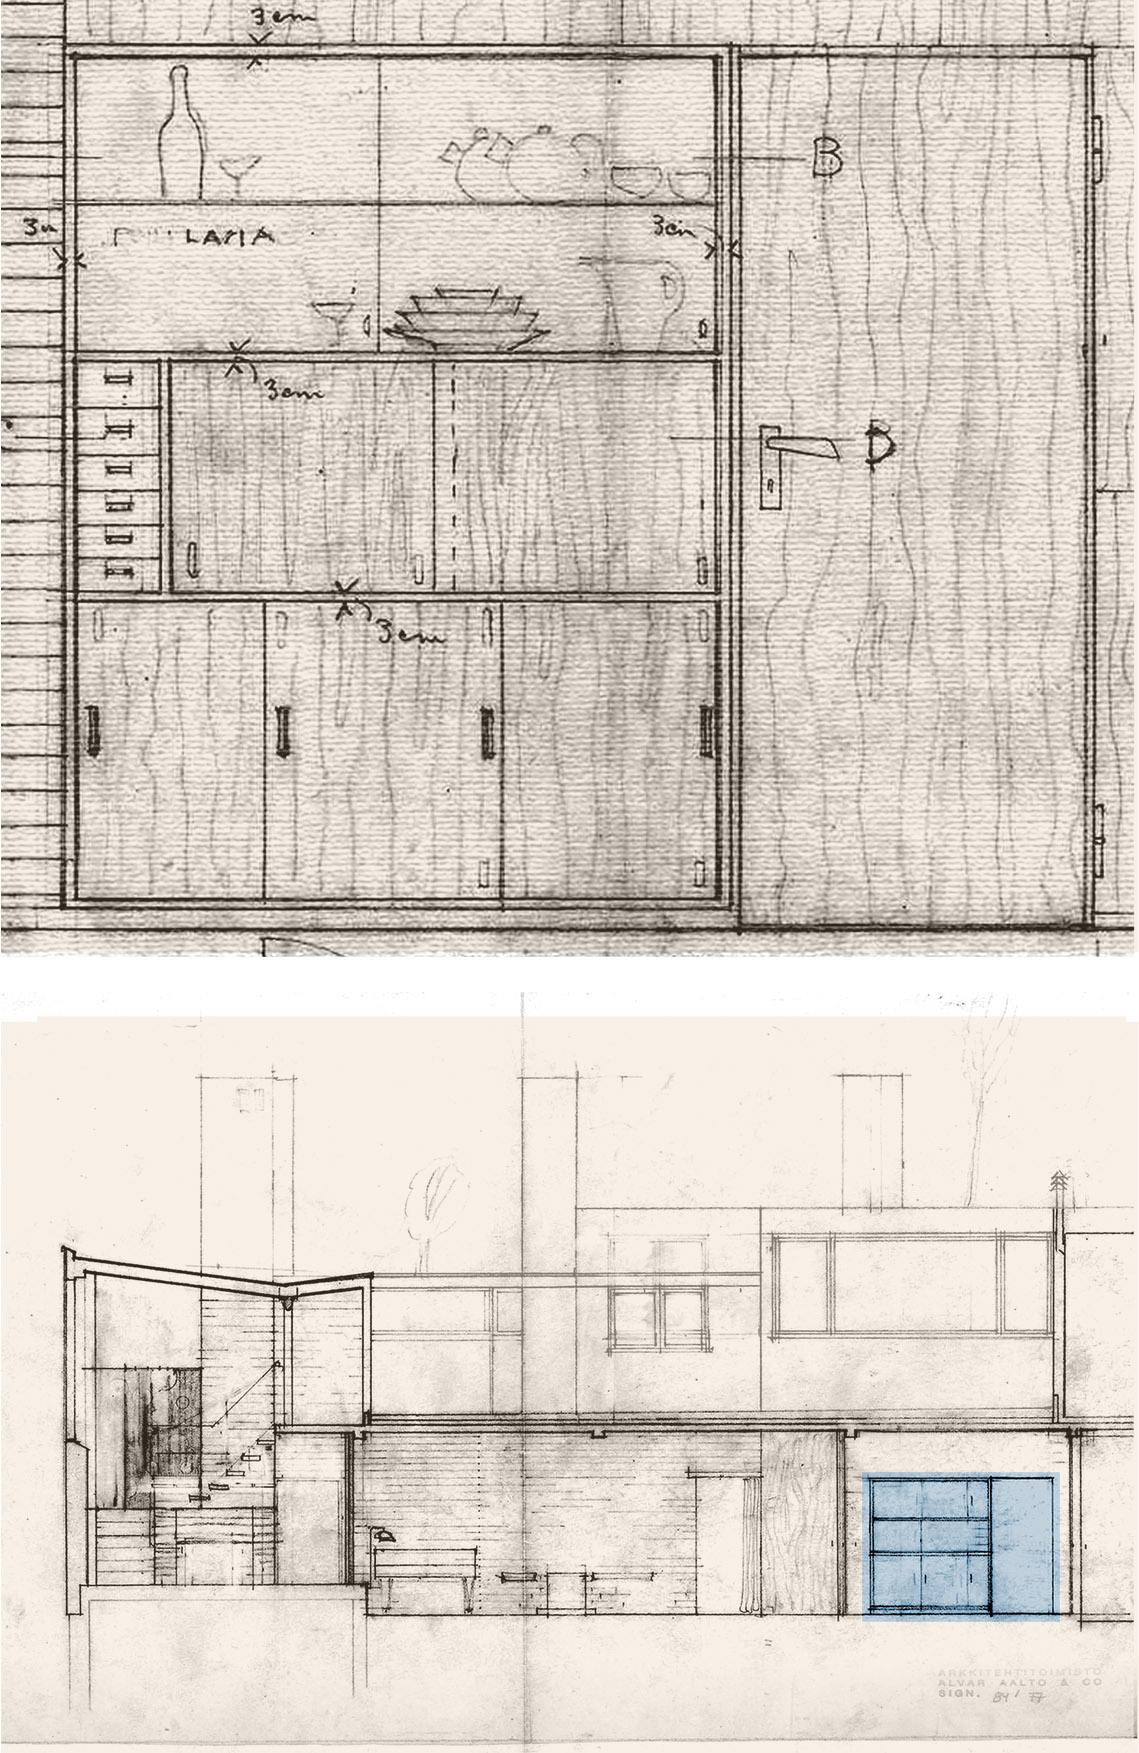 3 cm
B
3 cm
LASIA
3 cm
3 cm
B
3 cm
ARKKITEHTITOIMISTO
ALVAR AALTO & CO
SIGN. 84 /